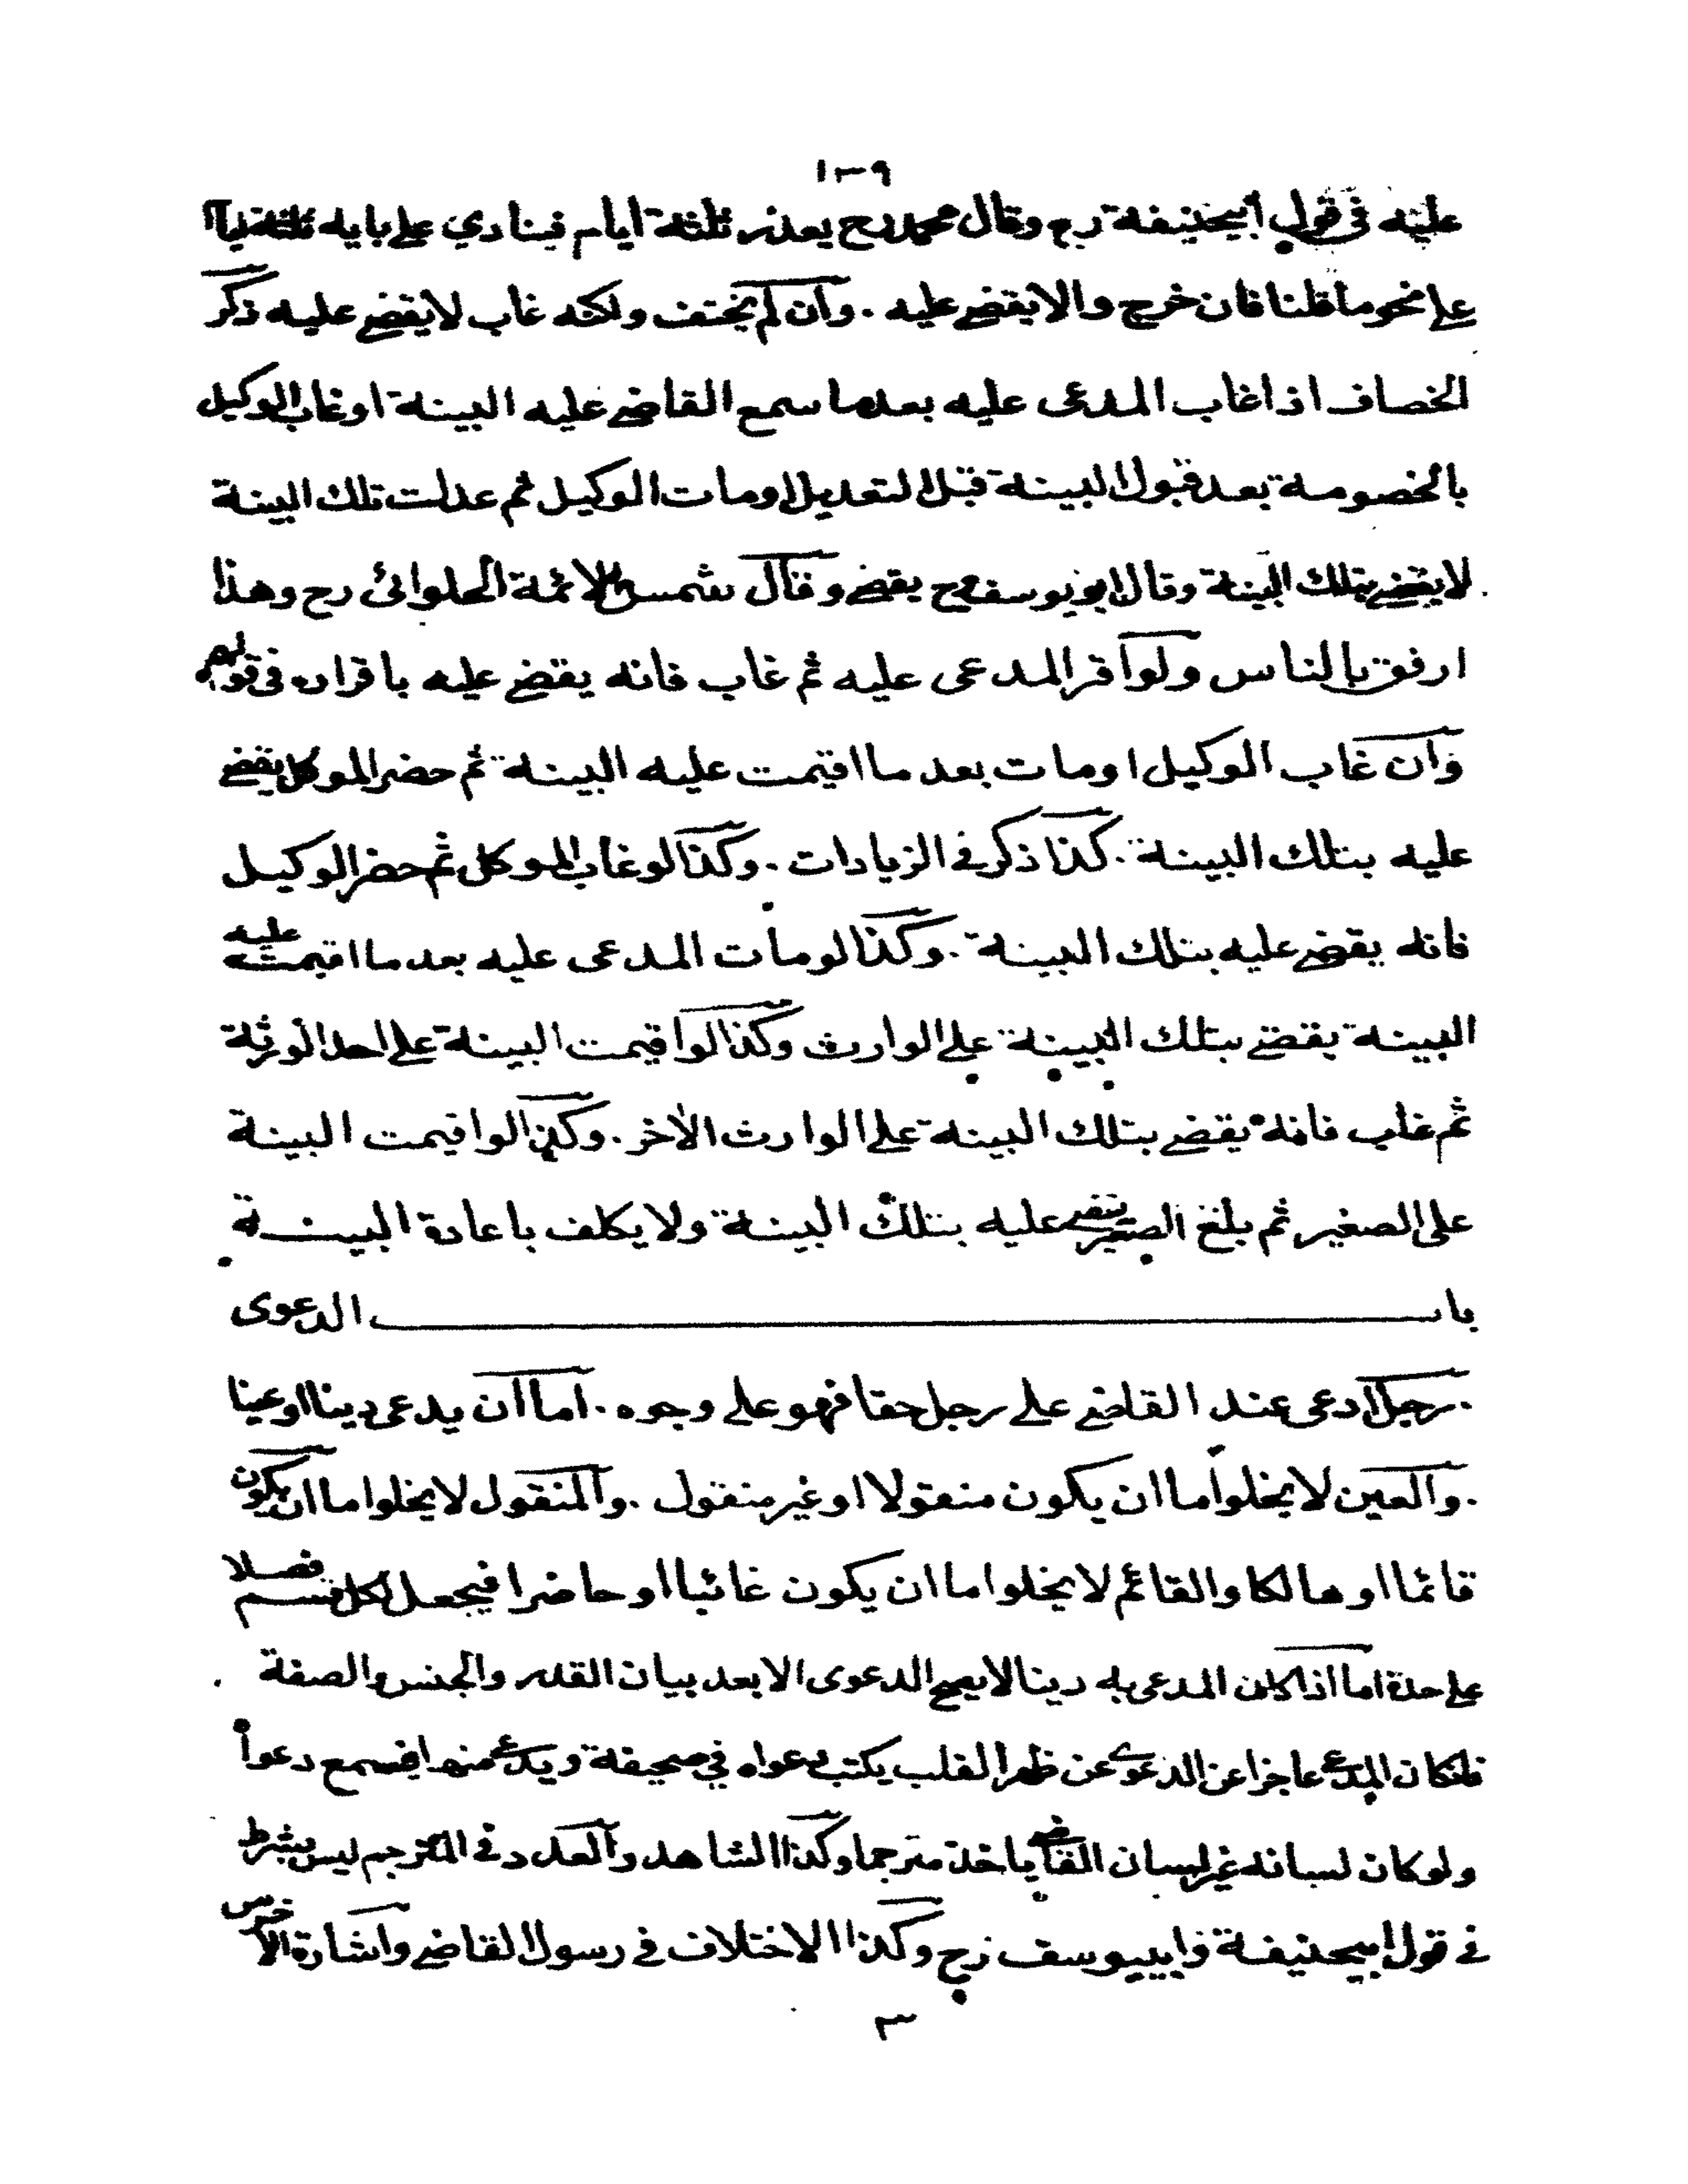 ١٠٩
عليه في قول ابيحنيفة رح وقال محمد رح يعذر ثلثة ايام فينادي على بابه ثلثة ايام
على نحو ما قلنا فان خرج والا يقضي عليه . وان لم يختف ولكنه غاب لا يقضي عليه ذكر
الخصاف اذا غاب المدعى عليه بعدما سمع القاضي عليه البينة او غاب الوكيل
بالخصومة بعد قبول البينة قبل التعديل او مات الوكيل ثم عدلت تلك البينة
لا يقضي بتلك البينة وقال ابو يوسف رح يقضي وقال شمس الائمة الحلوائى رح وهذا
ارفق بالناس ولو اقر المدعى عليه ثم غاب فانه يقضي عليه باقراره في قولهم
وان غاب الوكيل او مات بعد ما اقيمت عليه البينة ثم حضر الموكل يقضي
عليه بتلك البينة . كذا ذكر في الزيادات . وكذا لو غاب الموكل ثم حضر الوكيل
فانه يقضي عليه بتلك البينة . وكذا لو مات المدعى عليه بعد ما اقيمت عليه
البينة يقضي بتلك البينة على الوارث وكذا لو اقيمت البينة على احد الورثة
ثم غاب فانه يقضي بتلك البينة على الوارث الاخر . وكذا لو اقيمت البينة
على الصغير ثم بلغ الصغير يقضي عليه بتلك البينة ولا يكلف باعادة البينة
باب الدعوى
. رجل ادعى عند القاضي على رجل حقا فهو على وجوه . اما ان يدعى دينا او عينا
. والعين لا يخلوا ما ان يكون منقولا او غير منقول . والمنقول لا يخلوا ما ان يكون
قائما او هالكا والقائم لا يخلوا ما ان يكون غائبا او حاضرا فيجعل لكل قسم فصلا
على حدة اما اذا كان المدعى به دينا لا يصح الدعوى الا بعد بيان القدر والجنس والصفة
فان كان المدعي عاجزا عن الدعوى عن ظهر القلب يكتب دعواه في صحيفة ويدعي منها فيسمع دعواه
ولو كان لسانه غير لسان القاضي ياخذ مترجما وكذا الشاهد والعدد في المترجم ليس بشرط
في قول ابيحنيفة وابييوسف رح وكذا الاختلاف في رسول القاضي واشارة الاخرس
٣